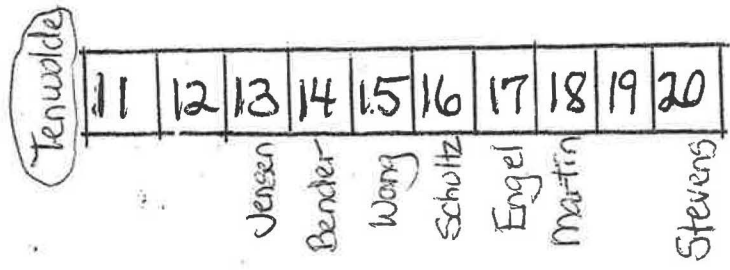 Tenwolde
11 12 13 14 15 16 17 18 19 20
Jensen
Bender
Wong
Schultz
Engel
Martin
Stevens